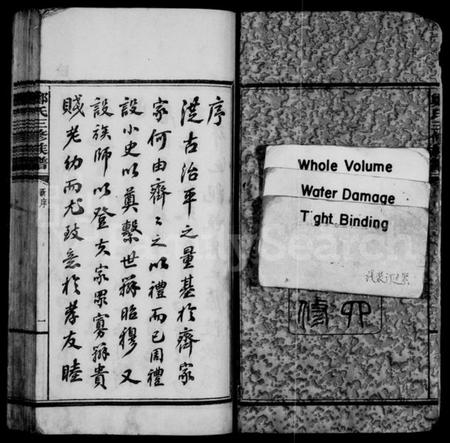 序
從古治平之量基於齊家
家何由齊齊之以禮而已周禮
設小史以奠繫世辨昭穆又
設族師以登夫家眾寡辨貴
賤老幼而尤致意於孝友睦
鄭氏三修族譜
新序
一
Whole Volume
Water Damage
Tight Binding
FamilySearch